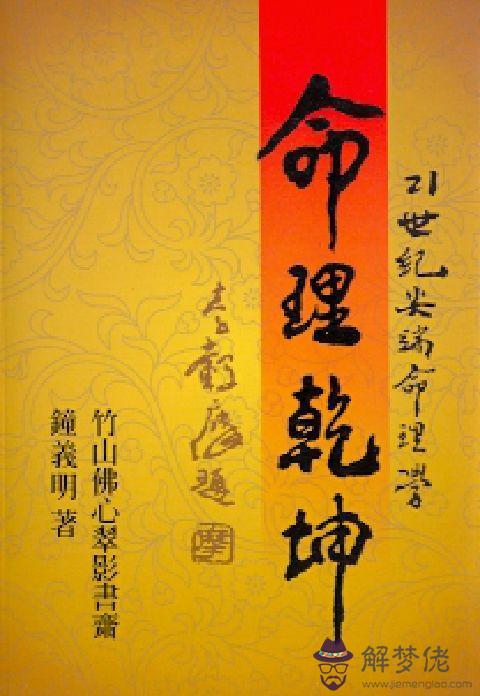 21世紀尖端命理學
命理乾坤
李轂摩題
竹山佛心翠影書齋
鐘義明著
解梦佬
www.jiemenglao.com